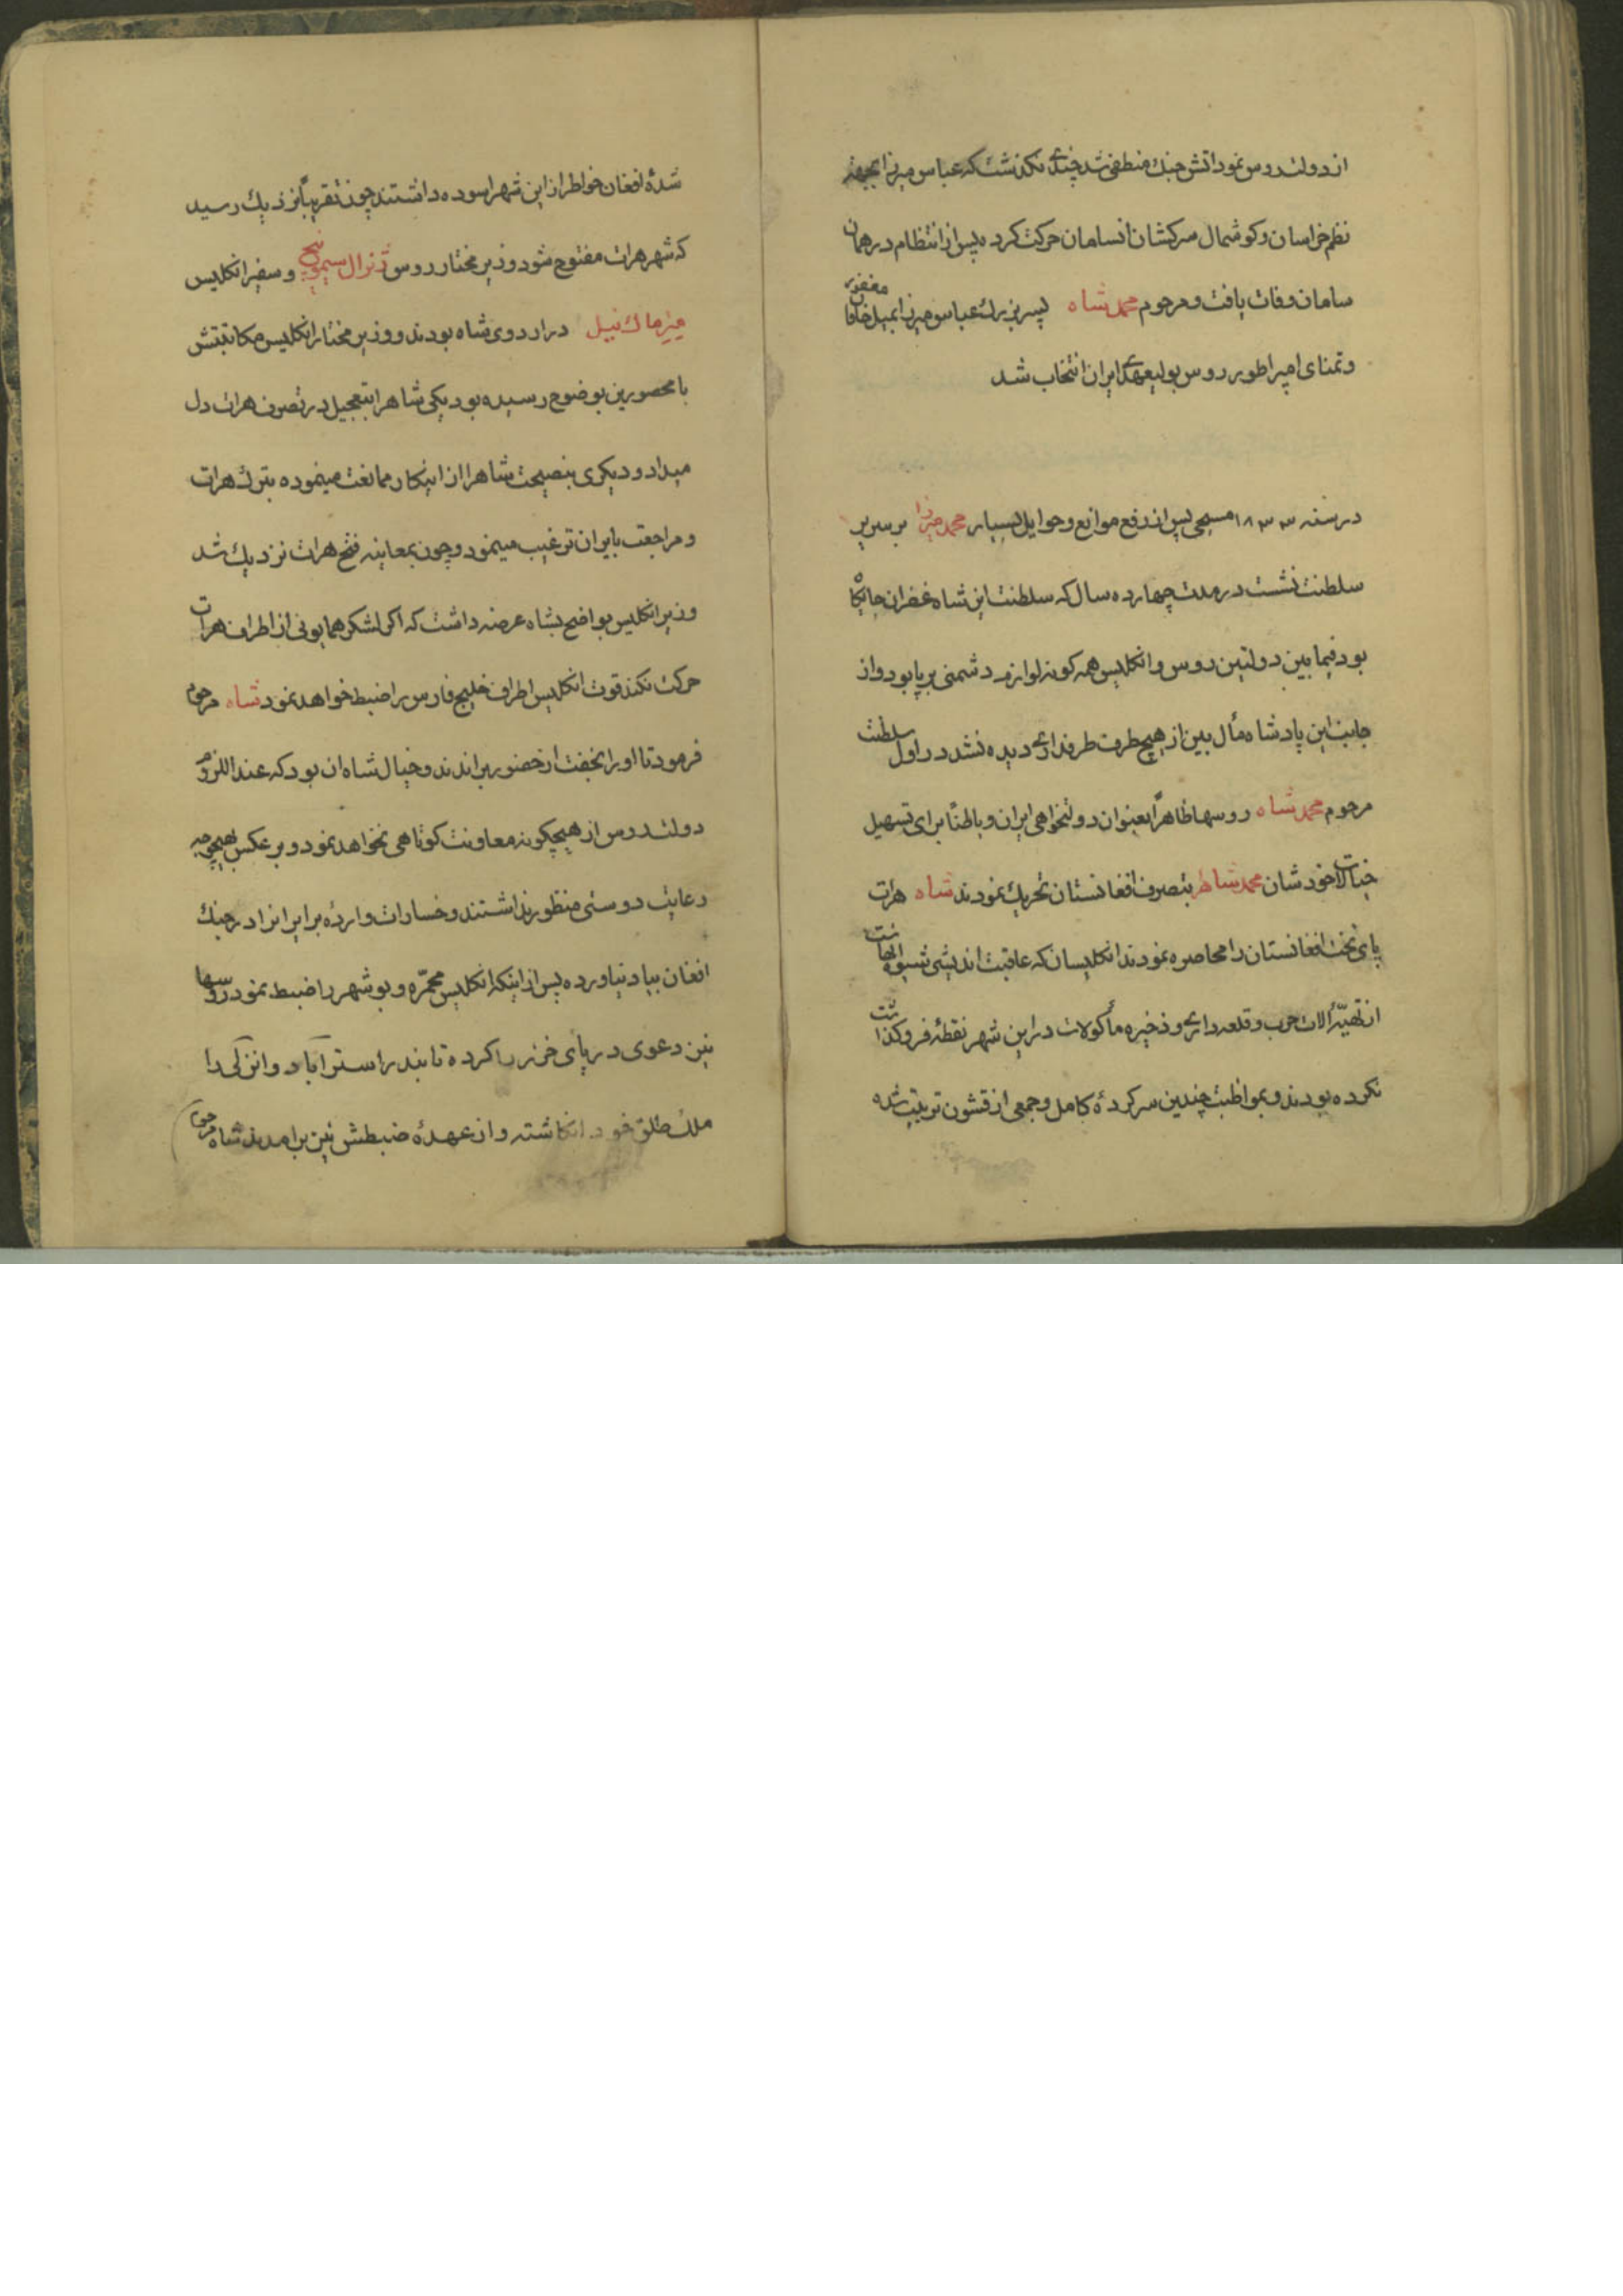 از دولت روس نمود اتش جنك منطفی شد چندی نكذشت كه عباس میرزا بجهة
نظم خراسان و كوشمال سركشان انسامان حركت كرده پس از انتظام در همان
سامان وفات یافت و مرحوم محمد شاه پسر بزرك عباس میرزا بمیل خاقان مغفور
و تمنای امپراطور روس بولیعهدی ایران انتخاب شد
در سنه ۱۸۳۳ مسیحی پس از رفع موانع و حوایل بسیار محمد میرزا بر سریر
سلطنت نشست در مدت چهارده سال كه سلطنت این شاه غفران جایكاه
بود فیما بین دولتین روس و انكلیس همه كونه لوازم دشمنی بر پا بود و از
جانب این پادشاه مأل بین از هیچ طرف طرفداری دیده نشد در اول سلطنت
مرحوم محمد شاه روسها ظاهراً بعنوان دولتخواهی ایران و باطناً برای تسهیل
خیالات خودشان محمد شاه را بتصرف افغانستان تحریك نمودند شاه هرات
پای تخت افغانستان را محاصره نمودند انكلیسان كه عاقبت اندیشی شیوه انهاست
از تهیّهٔ الات حرب و قلعه داری و ذخیره مأكولات در این شهر نقطهٔ فروكذاشت
نكرده بودند و بمواظبت چندین سركردهٔ كامل و جمعی از قشون تربیت شده
شدهٔ افغان خواطر از این شهر اسوده داشتند چون تقریباً نزدیك رسید
كه شهر هرات مفتوح شود وزیر مختار روس ژنرال سیمونیچ و سفیر انكلیس
میزماك نیل در اردوی شاه بودند و وزیر مختار انكلیس مكاتبتش
با محصورین بوضوح رسیده بود یكی شاهرا بتعجیل در تصرف هرات دل
میداد و دیكری بنصیحت شاهرا از اینكار ممانعت مینموده بترك هرات
و مراجعت بایران ترغیب مینمود و چون بمعاینه فتح هرات نزدیك شد
وزیر انكلیس بواضح بشاه عرضه داشت كه اكر لشكر همایونی از اطراف هرات
حركت نكند قوت انكلیس اطراف خلیج فارس را ضبط خواهد نمود شاه مرحوم
فرمود تا او را بخفت از حضور براندند و خیال شاه ان بود كه عند اللزوم
دولت روس از هیچكونه معاونت كوتاهی نخواهد نمود و بر عكس بهیچوجه
رعایت دوستی منظور نداشتند و خسارات واردهٔ بر ایرانرا در جنك
افغان بیاد نیاورده پس از اینكه انكلیس محمّره و بوشهر را ضبط نمود روسها
نیز دعوی دریای خزر را كرده تا بندر استراباد و انزلی را
ملك طلق خود انكاشته و از عهدهٔ ضبطش نیز برامدند شاه مرحوم